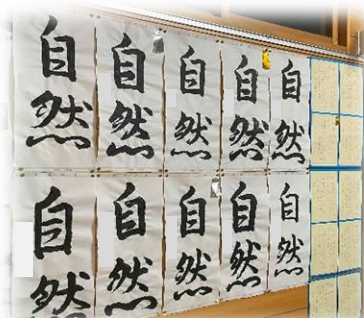 自然
自然
自然
自然
自然
自然
自然
自然
自然
自然